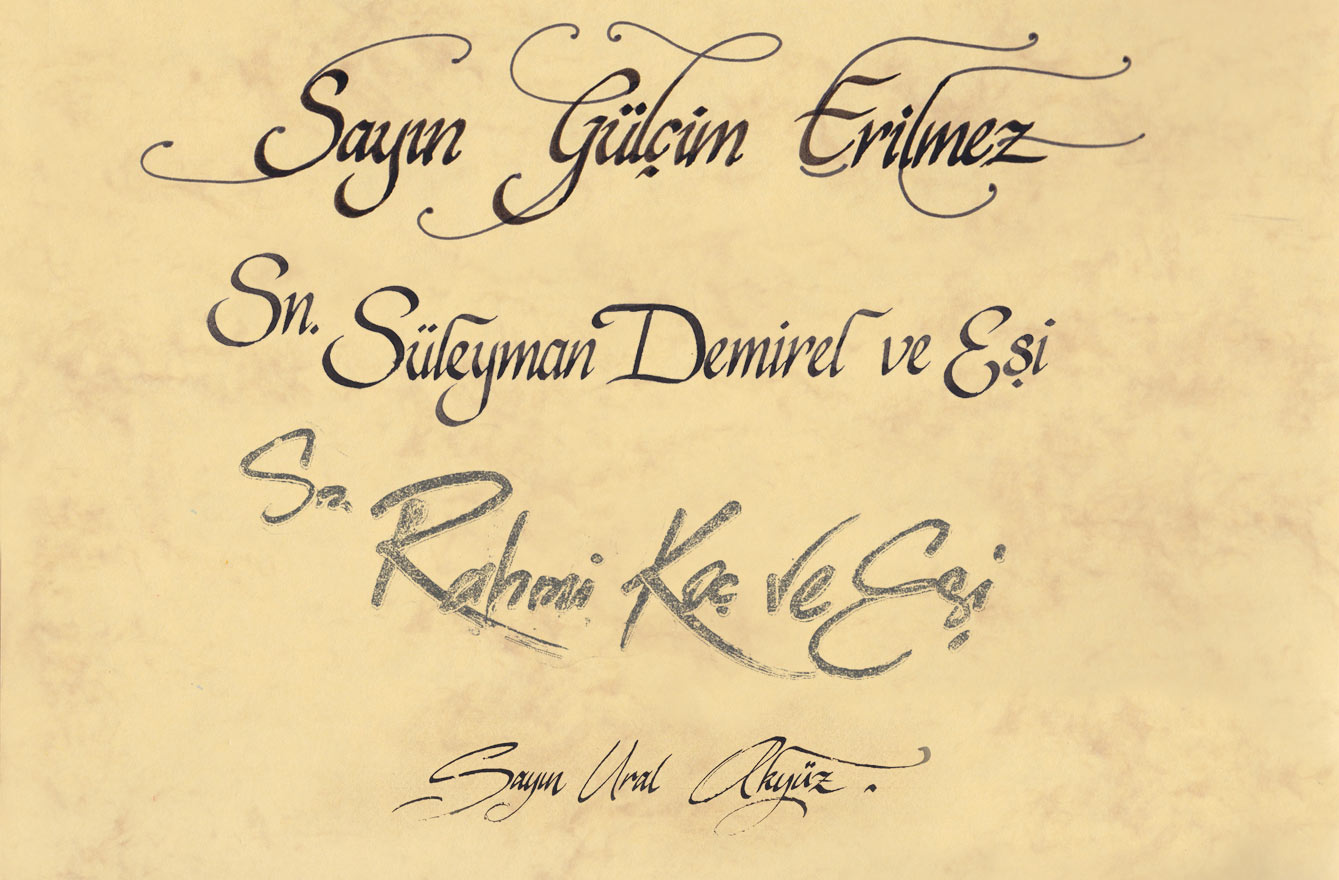 Sayın Gülçim Erilmez
Sn. Süleyman Demirel ve Eşi
Sn. Rahmi Koç ve Eşi
Sayın Ural Akyüz.